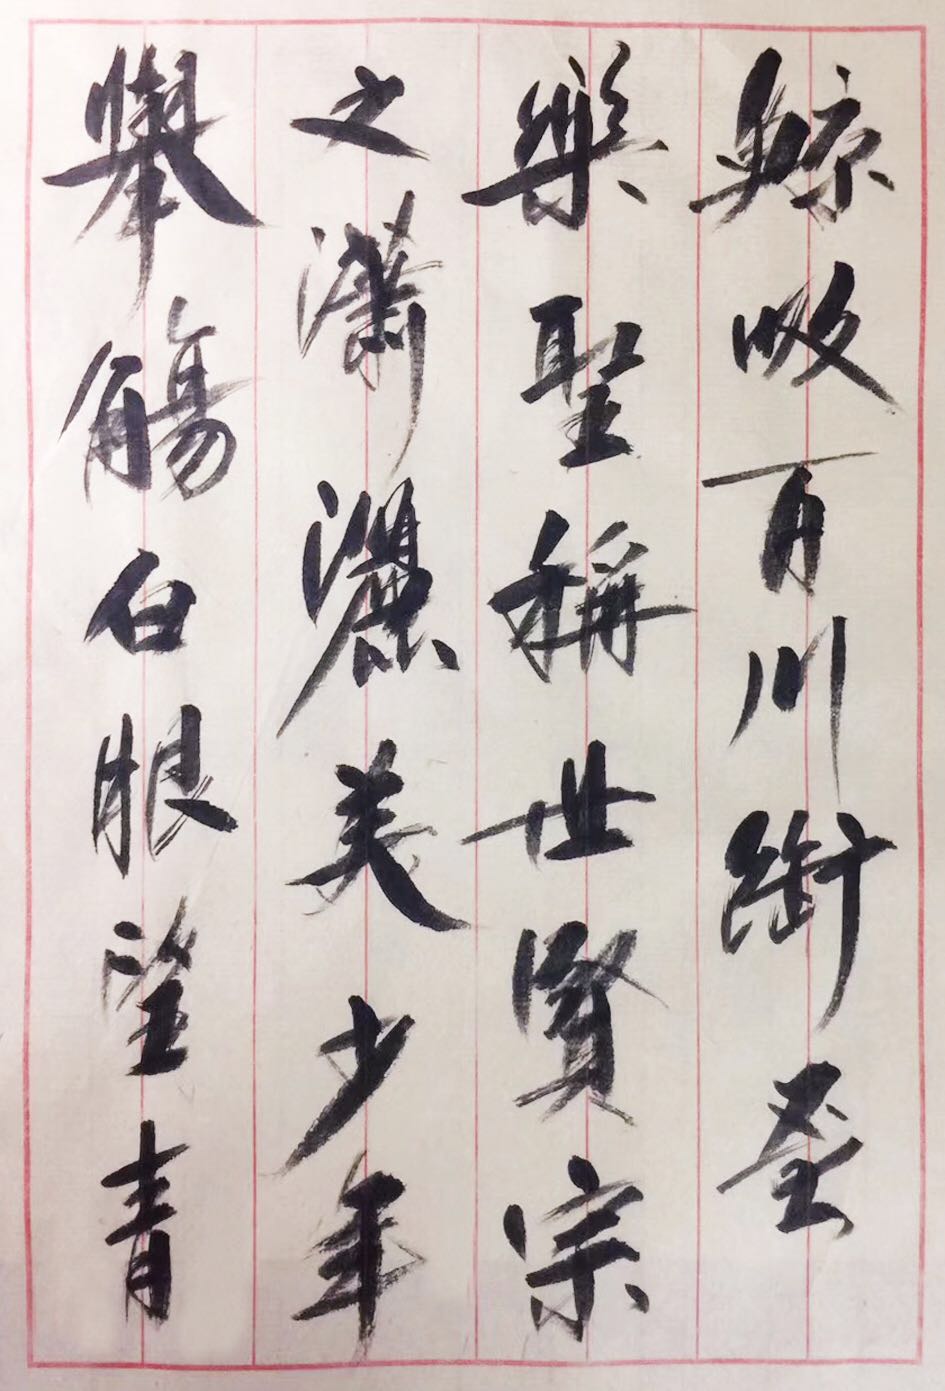 鯨吸百川銜盃
樂聖稱世賢宗
之瀟灑美少年
舉觴白眼望青